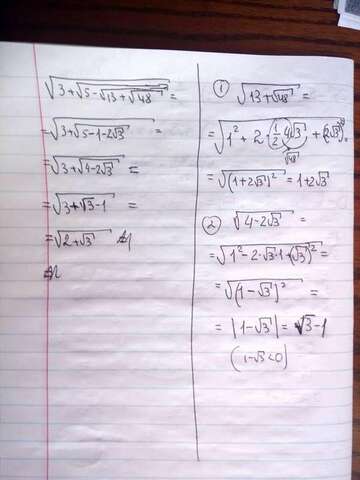 √(3+√(5-√(13+√48))) =
=√(3+√(5-1-2√3)) =
=√(3+√(4-2√3)) =
=√(3+√3-1) =
=√(2+√3)
① √(13+√48) =
=√(1²+2·½·4√3+(2√3)²) =
√48
=√((1+2√3)²) = 1+2√3
② √(4-2√3) =
=√(1²-2·√3·1+(√3)²) =
=√((1-√3)²) =
= |1-√3| = √3-1
(1-√3<0)